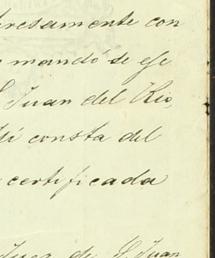 resamente con
mandó se eje
S Juan del Rio
sí consta del
certificada
Juez de S Juan